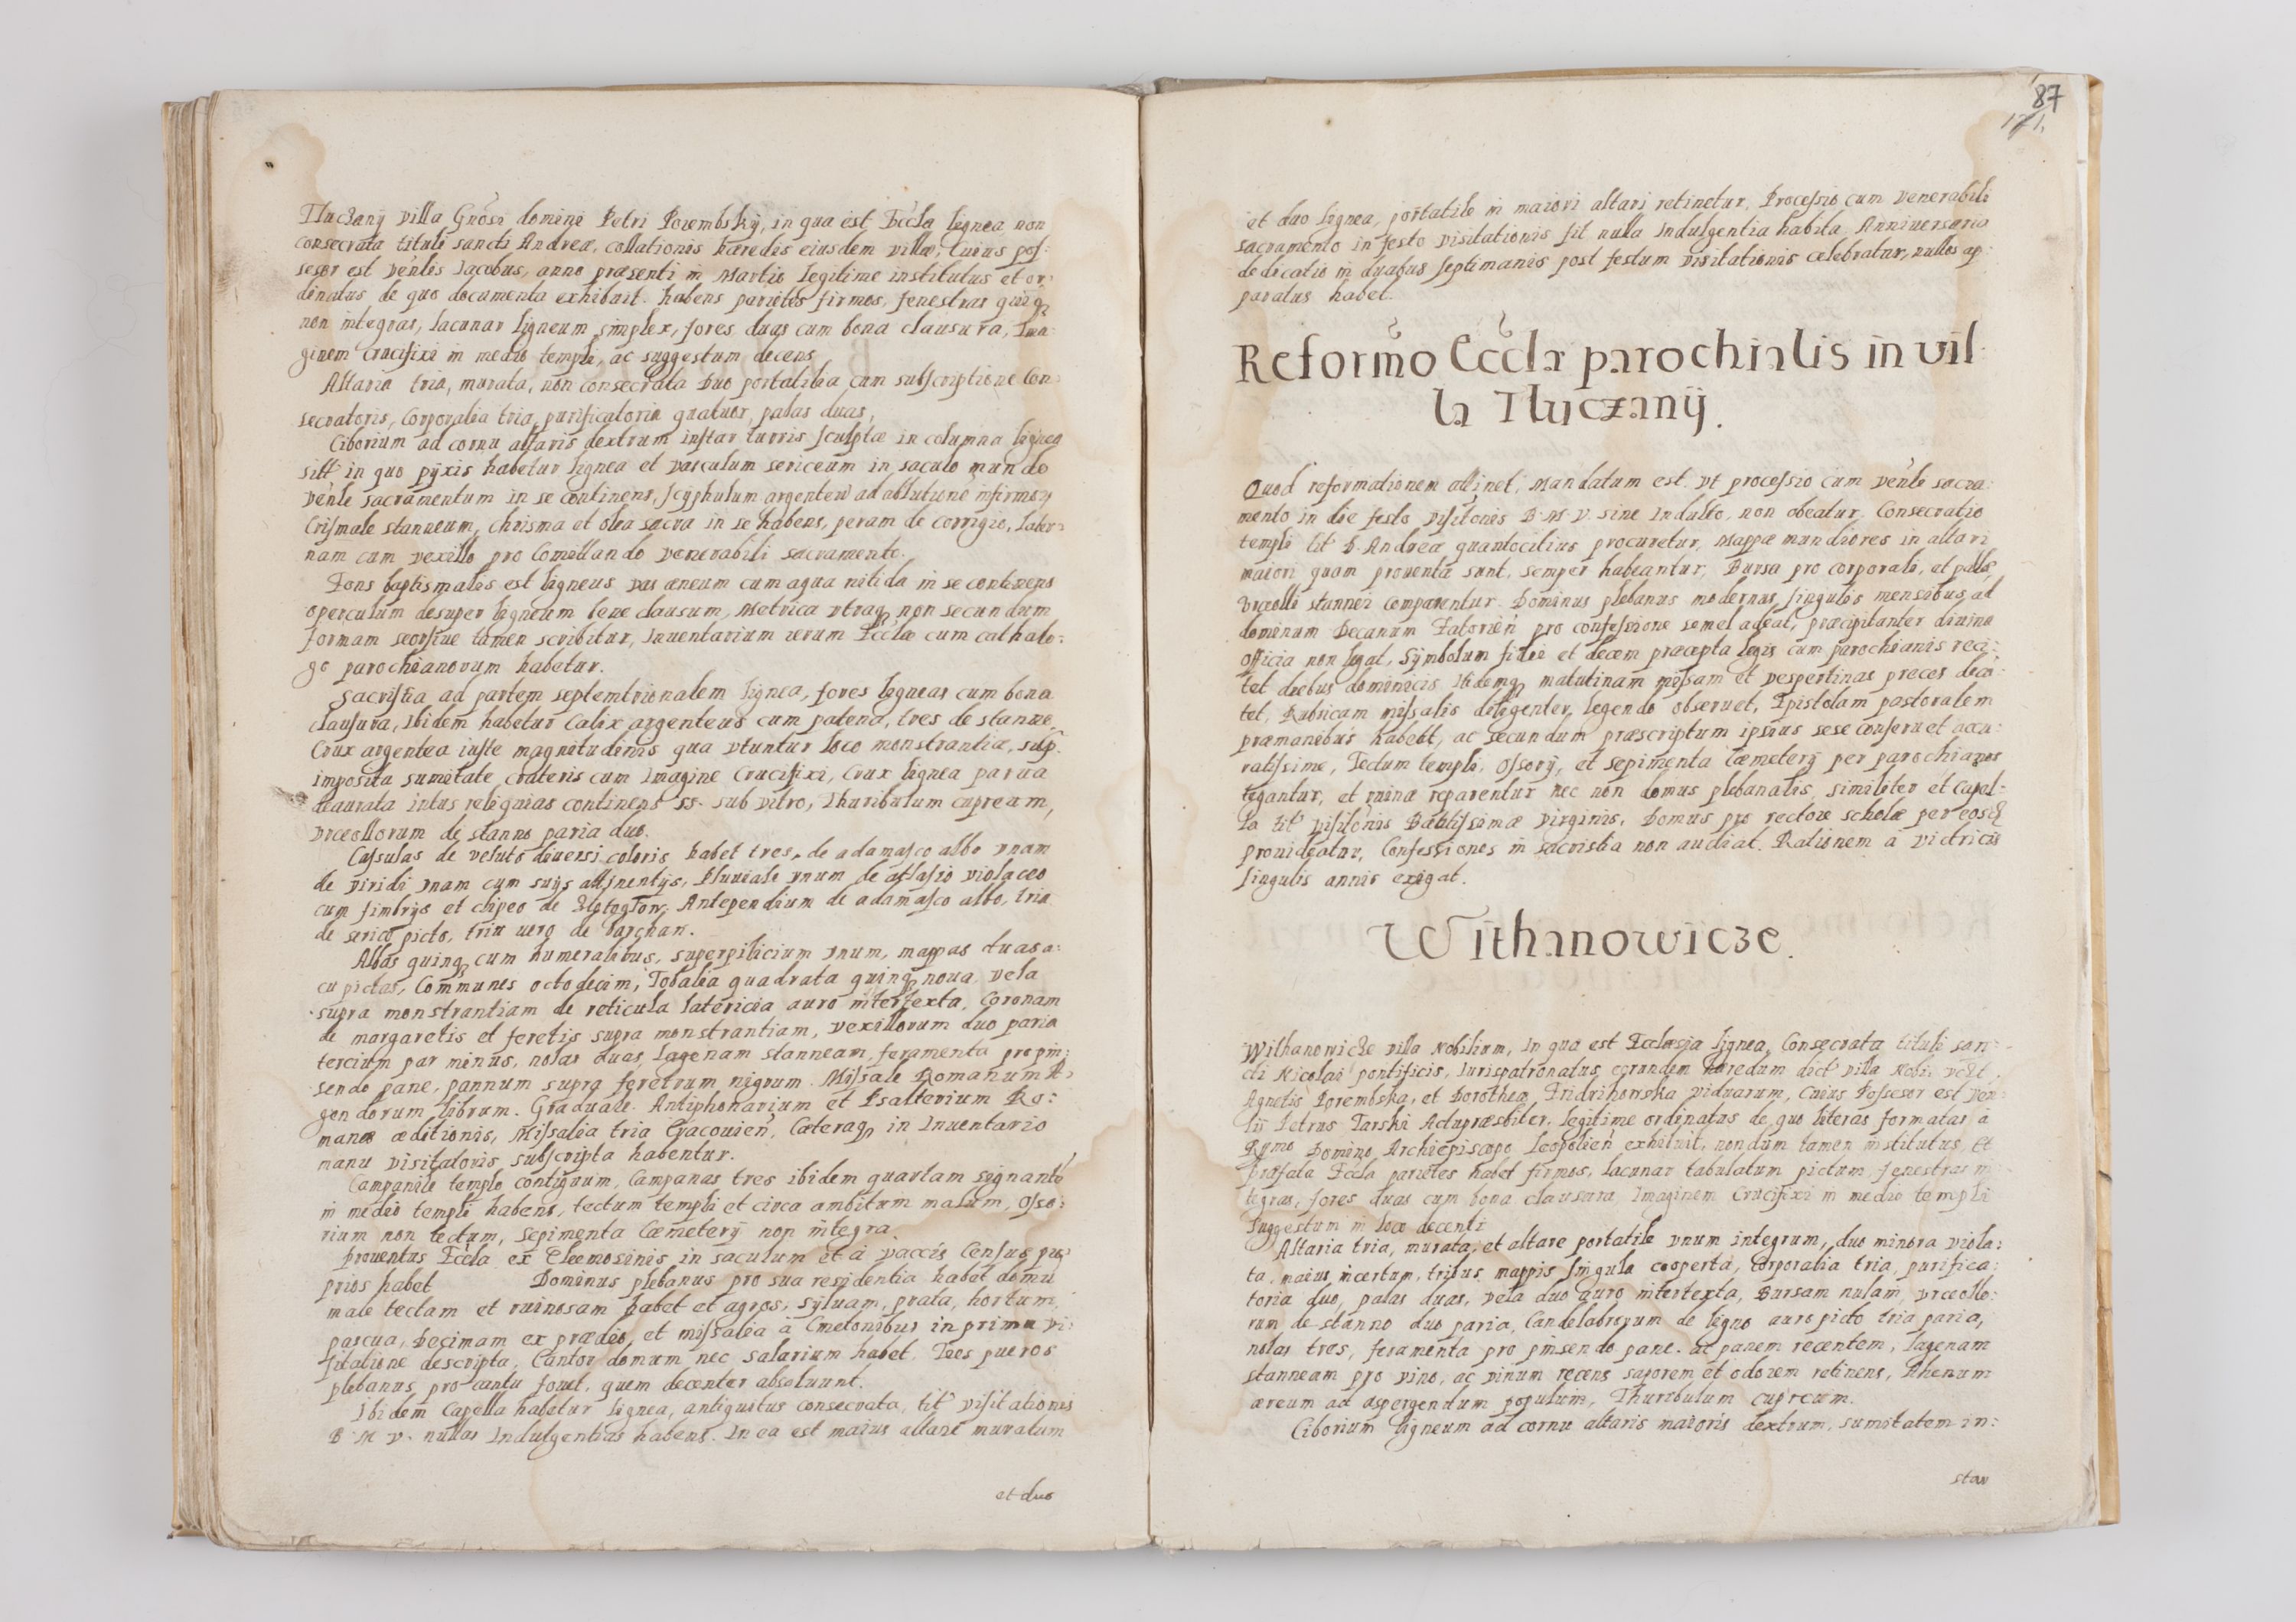 Tłuczany villa Gnosi domini Petri Porembsky, in qua est Eccla lignea non
consecrata tituli sancti Andreæ, collationis hæredis eiusdem villæ, Cuius pos:
sesor est venlis Iacobus, anno præsenti in Martio legitime institutus et or:
dinatus de quo documenta exhibuit. habens parietes firmos, fenestras quinq
non integras, lacunar ligneum simplex, fores duas cum bona clausura, Ima:
ginem Crucifixi in medio templi, ac suggestum decens
Altaria tria, murata, non consecrata Duo portatilia cum subscriptione Con:
secratoris, Corporalia tria, purificatoria quatuor, palas duas,
Ciborium ad cornu altaris dextrum instar turris sculptæ in columna lignea
sitt in quo pyxis habetur lignea et vasculum sericeum in saculo mundo
venle sacramentum in se continens, scyphulum argenteu ad ablutione infirmor
Crismale stanneum, chrisma et olea sacra in se habens, peram de corrigio, later:
nam cum vexillo pro Comittando venerabili sacramento.
Fons baptismalis est ligneus vas æneum cum aqua nitida in se continens
operculum desuper ligneum bene clausum, Metrica utraq non secundum
formam seorsive tamen scribitur, Inventarium rerum Ecclæ cum cathalo:
go parochianorum habetur.
Sacristia ad partem septemtrionalem lignea, fores ligneas cum bona
clausura, Ibidem habetur Calix argenteus cum patena, tres de stanno,
Crux argentea iuste magnitudinis qua utuntur loco monstrantiæ, sup
imposita sumitate crateris cum Imagine Crucifixi, Crux lignea parua
deaurata intus reliquias continens ss. sub vitro, Thuribulum cupreum,
Urceollorum de stanno paria duo.
Casulas de veluto diuersi coloris habet tres, de adamasco albo unam
de viridi unam cum suys attinentys, Pluuiale unum de atlasio violaceo
cum fimbrys et clipeo de Antependium de adamasco albo, tria
de serico picto, tria uero de harchan.
Albas quinq cum humeralibus, superpilicium unum, mappas duas a:
cu pictas, Communes octodecim, Tobalia quadrata quinq noua vela
supra monstrantiam de reticula latericia auro intertexta, Coronam
de margaretis et feretis supra monstrantiam, vexillorum duo paria
tercium par minus, nolas duas, lagenam stanneam, feramenta pro pin:
sendo pane, pannum supra feretrum nigrum. Missale Romanum A:
gendorum librum. Graduale Antiphonarium et Psalterium Ro:
manæ æditionis, Missalia tria Cracouien, Cæteraq in Inuentario
manu visitatoris subscripta habentur.
Campanile templo contiguum, Campanas tres ibidem quartam signanto
in medio templi habens, tectum templi et circa ambitum malum, Osso:
rium non tectum, Sepimenta Cæmetery non integra.
Prouentus Eccla ex Eleemosinis in saculum et à vaccis Census pro
prios habet Dominus plebanus pro sua residentia habet domu
male tectam et ruinosam habet et agros, syluam, prata, hortum,
pascua, Decimam ex prædio, et missalia à Cmetonibus in prima vi:
sitatione descripta, Cantor domum nec salarium habet. Tres pueros
plebanus pro cantu fouet, quem decenter absoluunt.
Ibidem Capella habetur lignea, antiquitus consecrata, tit Visitationis
B. M. V. nullas Indulgentias habens. In ea est maius altare muratum
et duo
87
171.
et duo lignea, portatile in maiori altari retinetur. Processio cum venerabili
sacramento in festo visitationis fit nulla Indulgentia habita, Anniuersaria
dedicatio in duabus septimanis post festum visitationis celebratur, nullos ap:
paratus habet.
Reformo Eccla parochialis in vil:
la Tłuczany.
Quod reformationem attinet, Mandatum est ut processio cum venle sacra:
mento in die festo visitonis B. M. V. sine Indulto, non obeatur. Consecratio
templi tit D. Andreæ quantocitius procuretur, Mappæ mundiores in altari
maiori quam prouenta sunt, semper habeantur, Bursa pro corporali, et palæ,
Urceolli stannei Comparentur. Dominus plebanus modernus singulis mensibus ad
dominum Decanum Zatorien pro confessione semel adeat, præcipitanter diuina
officia non legat, Symbolum fidei et decem præcepta legis cum parochianis reci:
tet diebus dominicis Ibidemq matutinam missam et vespertinas preces deca:
tet, Rubricam missalis diligenter legendo obseruet, Epistolam pastoralem
præmanibus habeat, ac secundum præscriptum ipsius sese Conseruet accu:
ratissime, Tectum templi, Ossory, et sepimenta Cæmetery per parochianos
tegantur, et ruinæ reparentur nec non domus plebanalis, similiter et Capel:
la tit Visitonis Beatissimæ Virginis, Domus pro rectore scholæ per eosd
prouideatur, Confessiones in sacristia non audiat. Rationem à Victricis
singulis annis exigat.
Withanowicze.
Withanowicze villa Nobilium, In qua est Ecclesia lignea, Consecrata tituli san:
cti Nicolai pontificis, Iurispatronatus eorundem hæredum dict villa Nobi:
Agnetis Porembska, et Dorothea Fridrihowska viduarum, Cuius Possesor est ven:
lis Petrus Tarski Actupræsbiter, legitime ordinatus de quo literas formatas à
Rymo Domino Archiepiscopo Leopolien exhibuit, nondum tamen institutus, Et
præfata Eccla parietes habet firmos, lacunar tabulatum pictum, fenestras in:
tegras, fores duas cum bona clausura, Imaginem Crucifixi in medio templi
Suggestum in loco decenti
Altaria tria, murata, et altare portatile unum integrum, duo minora viola:
ta, maius incertum, tribus mappis singula cooperta, Corporalia tria, purifica:
toria duo, palas duas, vela duo auro intertexta, Bursam nulam, urceollo:
rum de stanno duo paria, Candelabrorum de ligno auro picto tria paria,
nolas tres, feramenta pro pinsendo pane. ac panem recentem, lagenam
stanneam pro vino, ac vinum recens saporem et odorem retinens, Ahenum
æreum ad aspergendum populum, Thuribulum cupreum.
Ciborium ligneum ad cornu altaris maioris dextrum, sumitatem in:
star